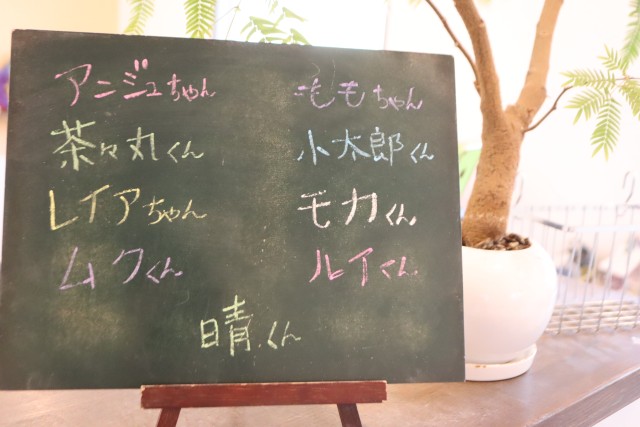 アンジュちゃん
ももちゃん
茶々丸くん
小太郎くん
レイアちゃん
モカくん
ムクくん
ルイくん
日青くん